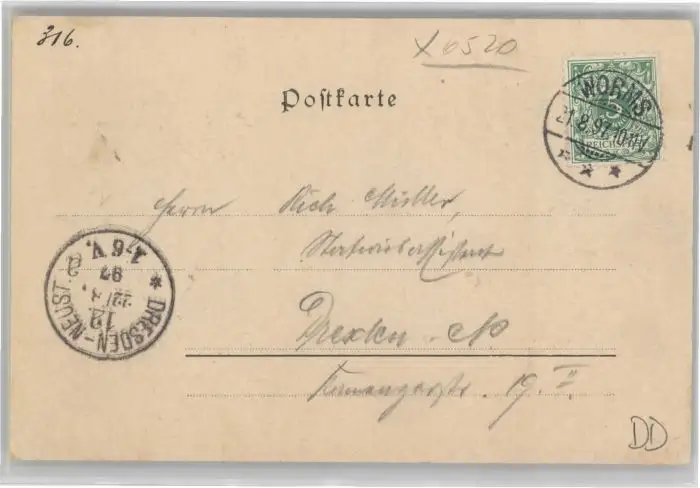 316.
X 0520
Postkarte
WORMS
21.8.97.10-11V.
REICHSPOST
Herrn Rich. Müller,
Stationsassistent
Dresden-N.
19. II
DRESDEN-NEUST.
12
22/8.
97
7-8 V.
DD